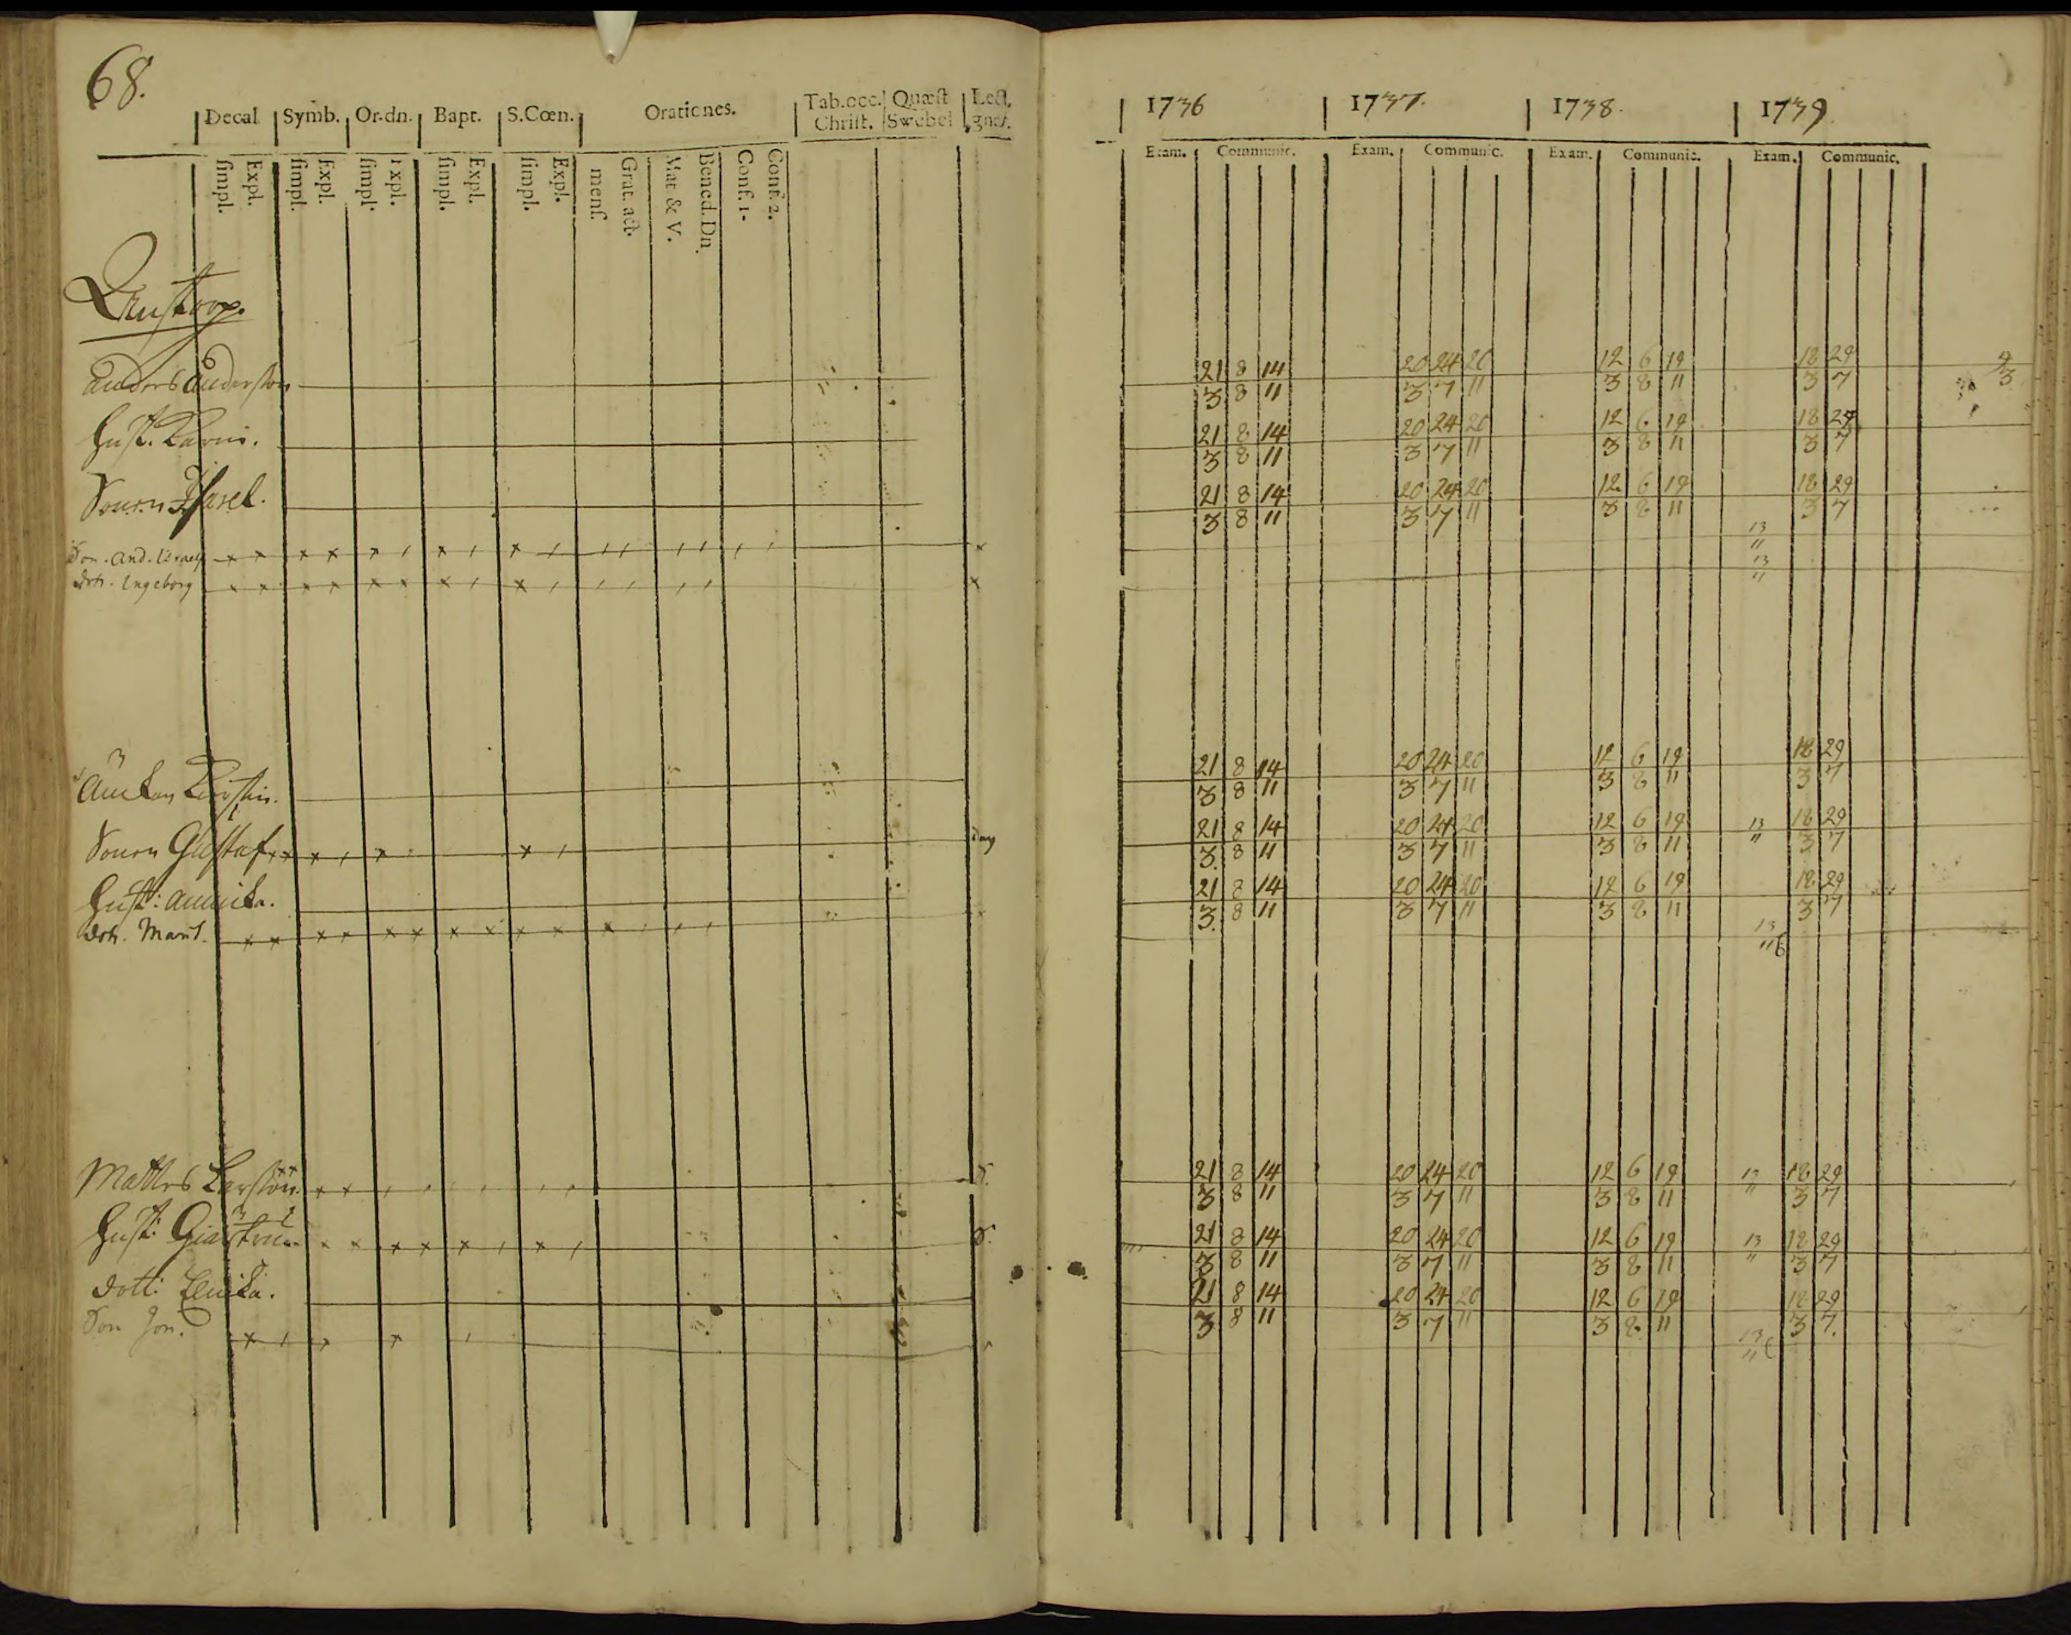 68.
Decal Symb. Or.dn. Bapt. S.Cœn. Orationes. Tab.occ. Christ. Quæst Swebel Lect.
simpl. Expl. simpl. Expl. simpl. Expl. simpl. Expl. simpl. Expl. mens. Grat. act. Mat & V. Bened. Dn. Conf. 1. Conf. 2.
Anders Anderson
Hust. Karin.
Sonen
Son. And.
dotr. Ingeborg
Änkan Kirstin.
Sonen Gustaf
day
Hust: Annika.
dotr. Marit.
Mattes Larsson
S.
Hust:
S.
dott:
Son Jon.
1736 1737. 1738. 1739
Exam. Communic. Exam. Communic. Exam. Communic. Exam. Communic.
21 8 14 20 24 20 12 6 19 18 29
3 8 11 3 7 11 3 8 11 3 7
21 8 14 20 24 20 12 6 19 18 29
3 8 11 3 7 11 3 8 11 3 7
21 8 14 20 24 20 12 6 19 18 29
3 8 11 3 7 11 3 8 11 3 7
13
11
13
11
21 8 14 20 24 20 12 6 19 18 29
3 8 11 3 7 11 3 8 11 3 7
21 8 14 20 24 20 12 6 19 13 18 29
3 8 11 3 7 11 3 8 11 11 3 7
21 8 14 20 24 20 12 6 19 18 29
3 8 11 3 7 11 3 8 11 3 7
13
11
21 8 14 20 24 20 12 6 19 13 18 29
3 8 11 3 7 11 3 8 11 11 3 7
21 8 14 20 24 20 12 6 19 13 18 29
3 8 11 3 7 11 3 8 11 11 3 7
21 8 14 20 24 20 12 6 19 18 29
3 8 11 3 7 11 3 8 11 3 7.
13
11